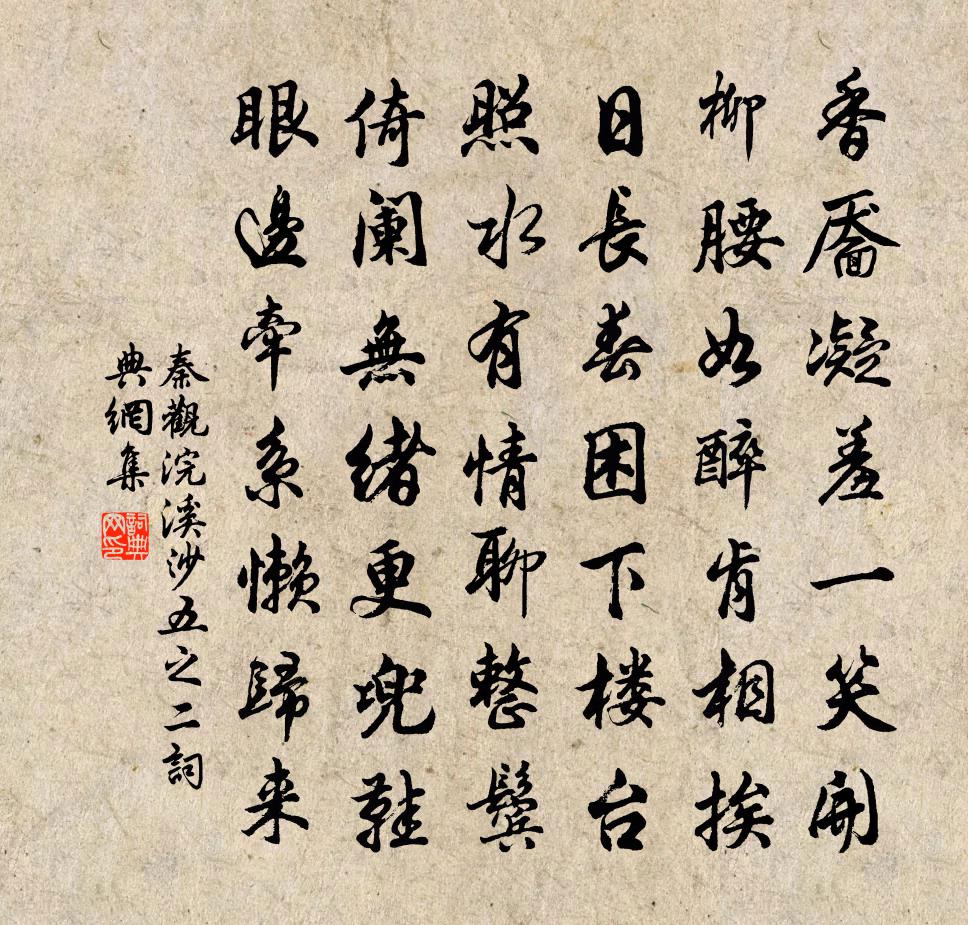 香靨凝羞一笑開
柳腰如醉肯相挨
日長春困下楼台
照水有情聊整鬓
倚阑無緒更兜鞋
眼邊牽系懒歸来
秦觀浣溪沙五之二詞
典網集
詞典網印